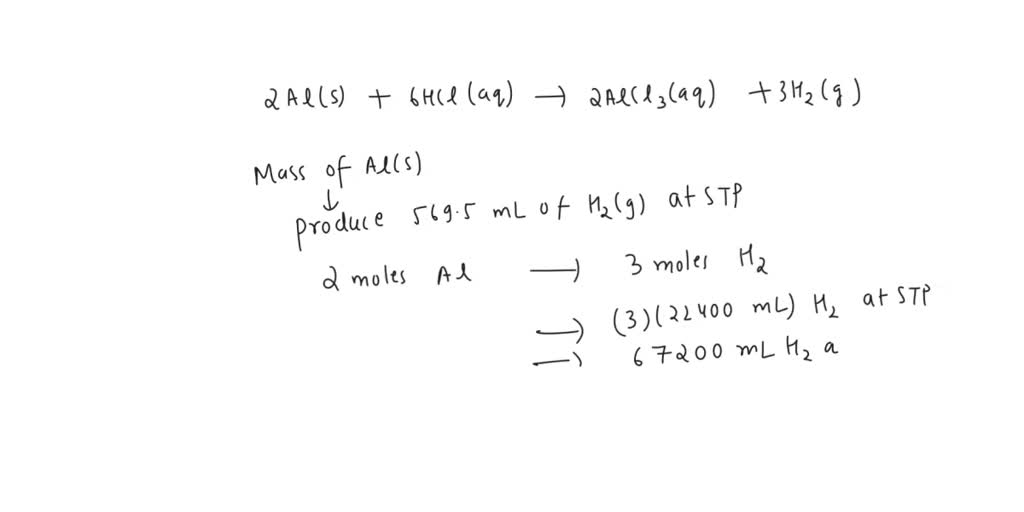 2Al(s) + 6HCl(aq) → 2AlCl₃(aq) + 3H₂(g)
Mass of Al(s)
↓
produce 569.5 mL of H₂(g) at STP
2 moles Al → 3 moles H₂
→ (3)(22400 mL) H₂ at STP
→ 67200 mL H₂ a